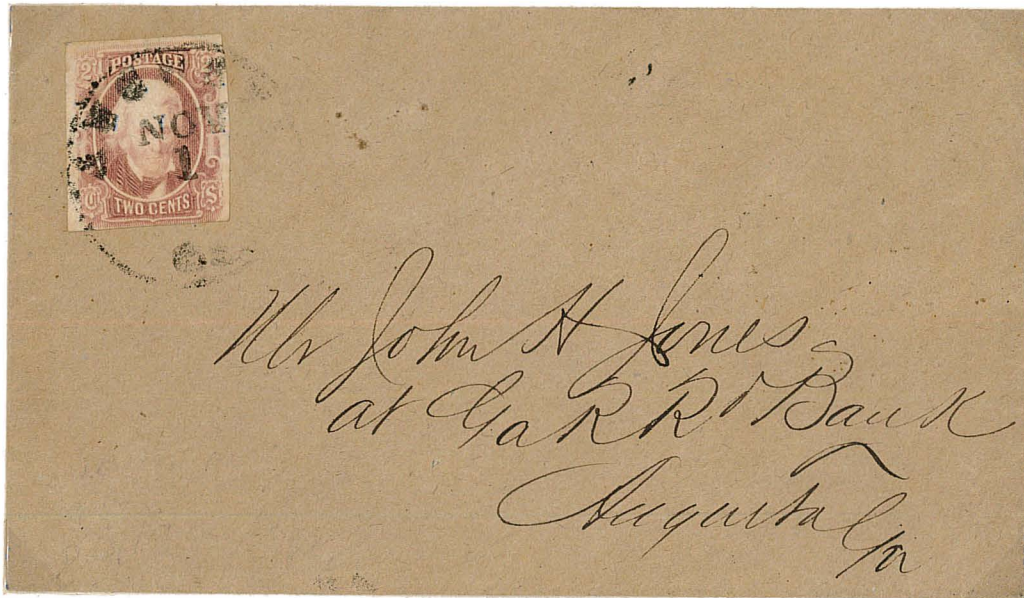 2 POSTAGE 2
NOV
1
C S
TWO CENTS
Mr John H Jones
at Ga R R & Bank
Augusta
Ga